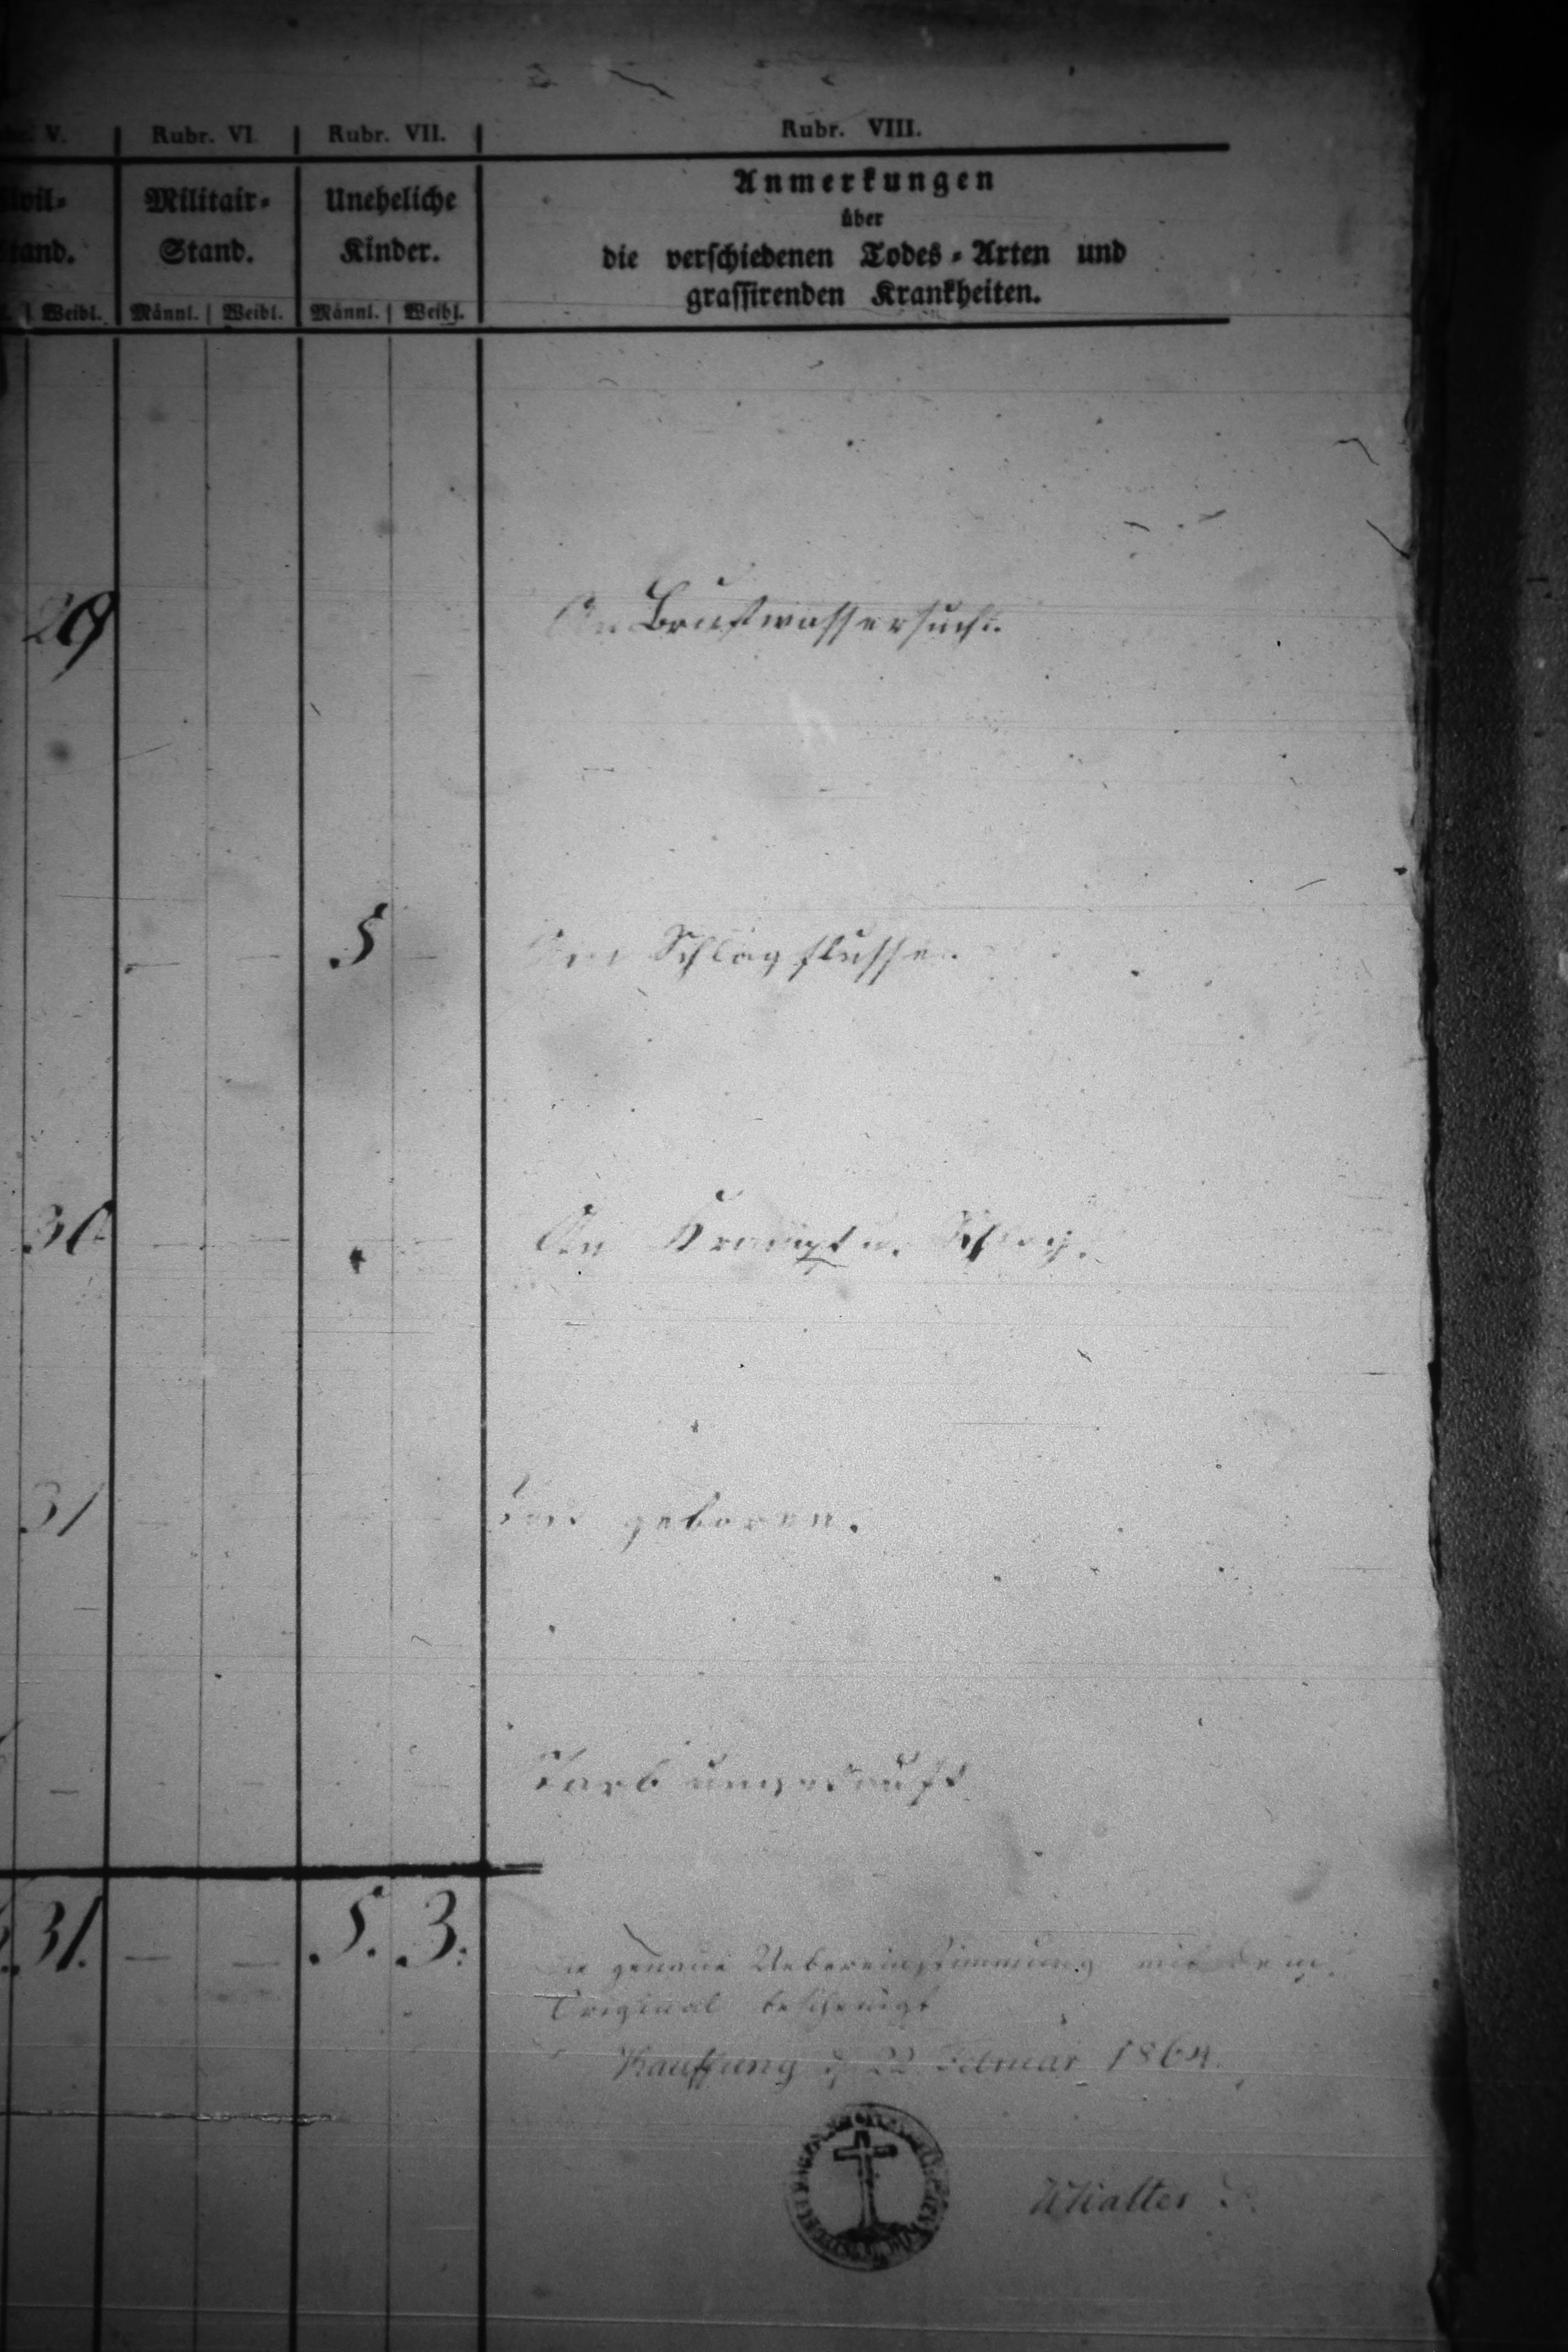 V. Rubr. VI. Rubr. VII. Rubr. VIII.
Civil-Stand. Militair-Stand. Uneheliche Kinder.
Anmerkungen
über
die verschiedenen Todes-Arten und
grassirenden Krankheiten.
Weibl. Männl. Weibl. Männl. Weibl.
29 An Brustwassersucht.
5 Am Schlagflusse.
30 An Krampf u. Schlag.
31 Tod geboren.
Starb ungetauft
31. 5. 3.
Die genaue Uebereinstimmung mit dem
Original bescheinigt
Kauffung d. 22 Februar 1864.
Walter